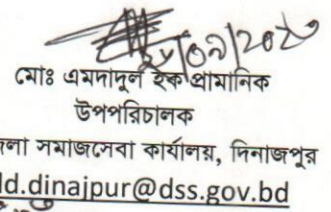 মোঃ এমদাদুল হক প্রামানিক
উপপরিচালক
সমাজসেবা কার্যালয়, দিনাজপুর
dd.dinajpur@dss.gov.bd